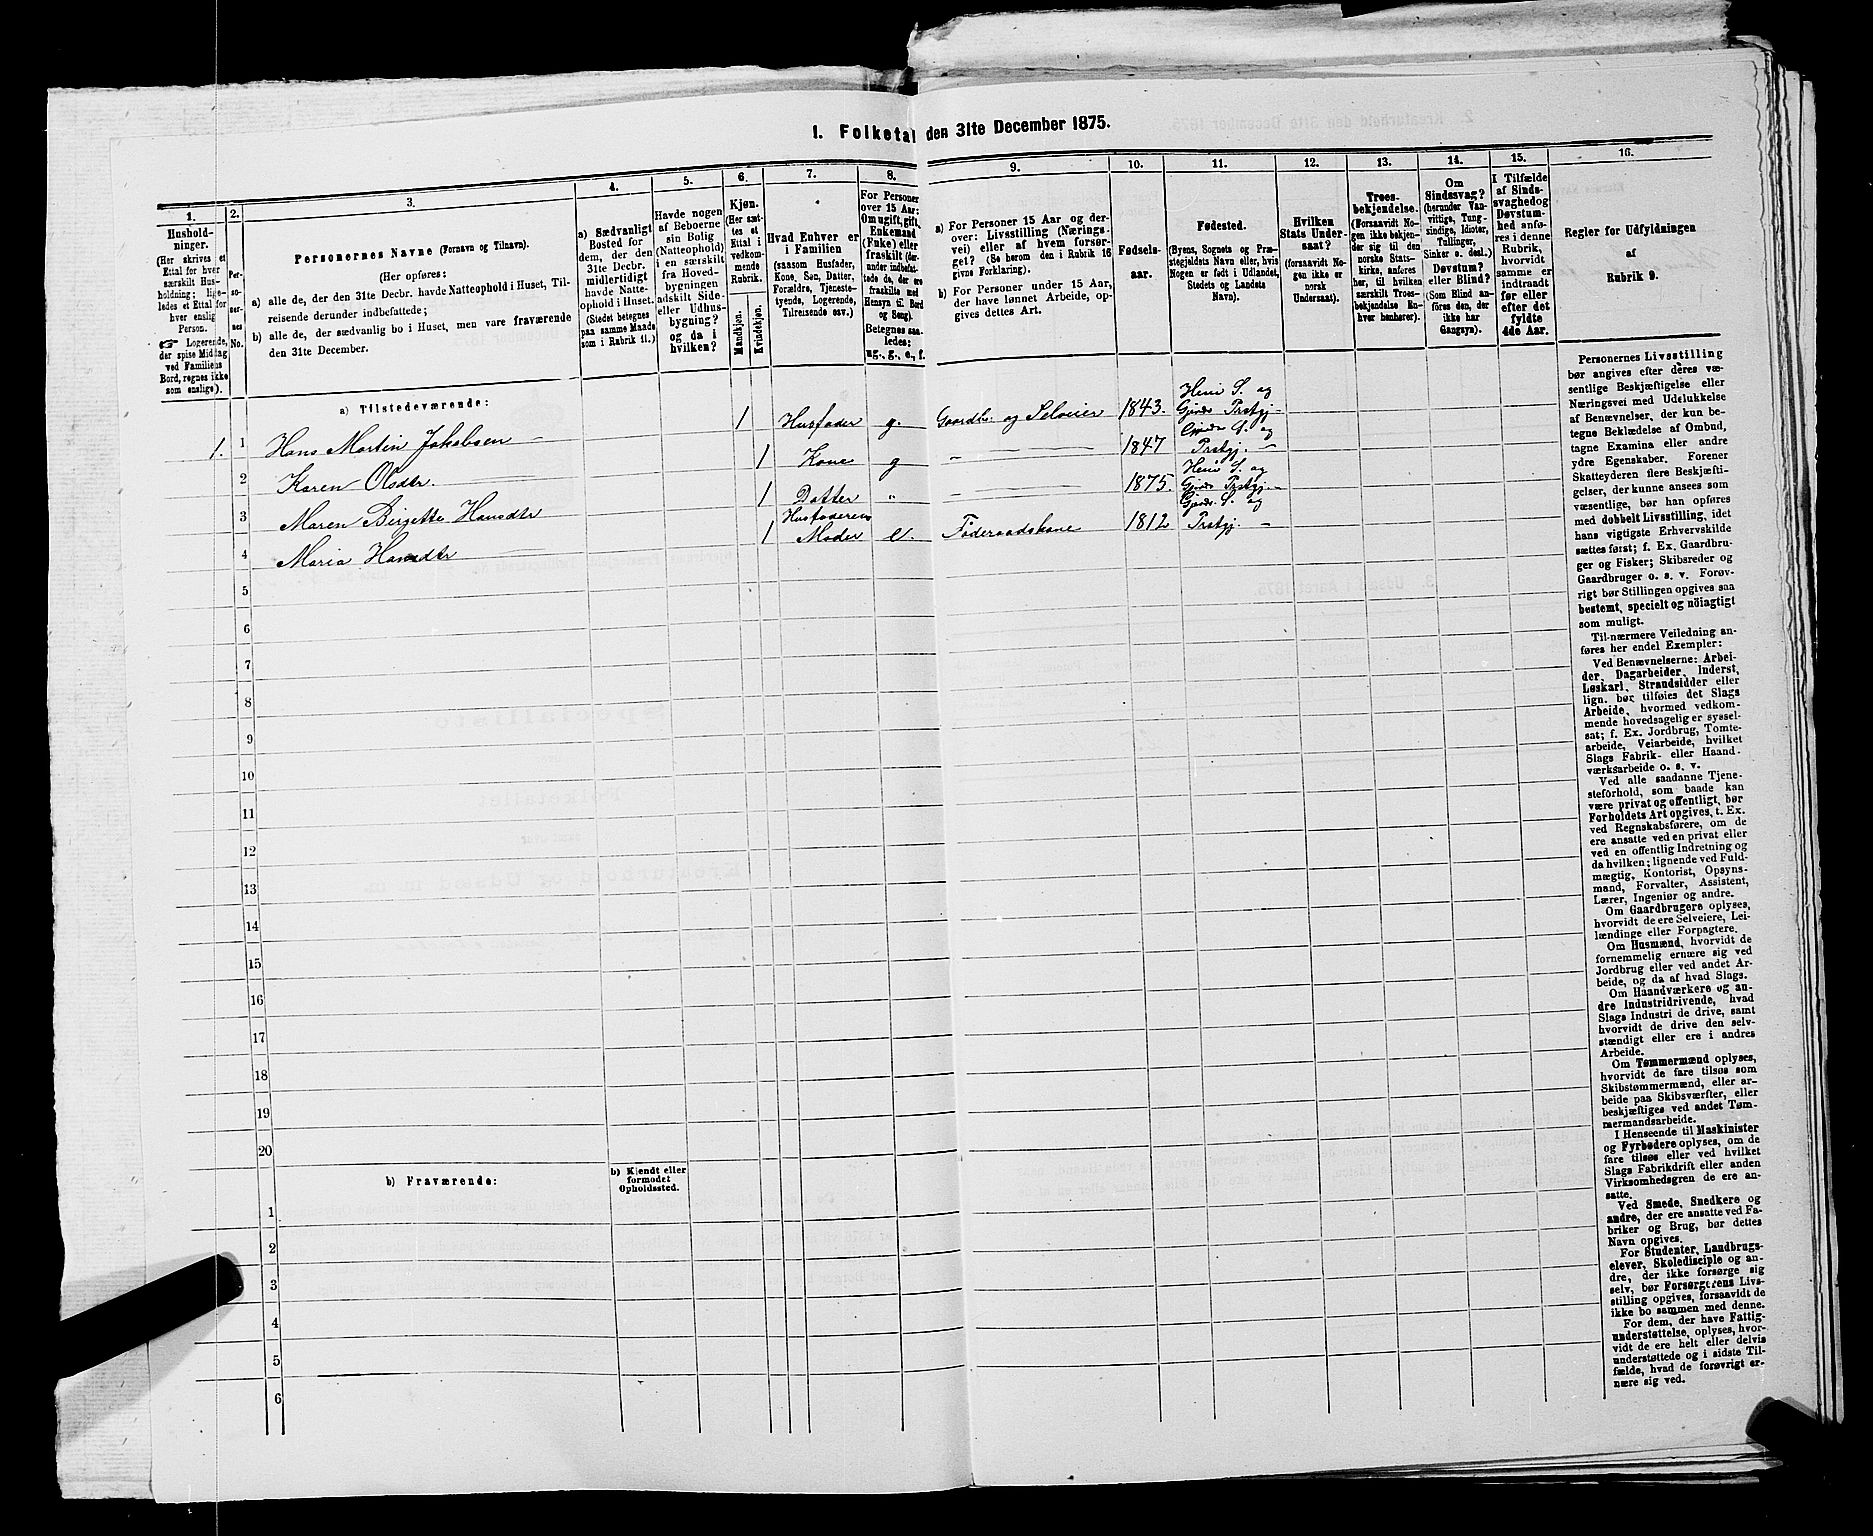 I. Folketal den 31te December 1875.
1.
Hushold-
ninger.
(Her skrives et
Ettal for hver
særskilt Hus-
holdning; lige-
ledes et Ettal for
hver enslig
Person.
☞ Logerende,
der spise Middag
ved Familiens
Bord, regnes ikke
som enslige).
2.
Per-
so-
ner-
nes
No.
3.
Personernes Navne (Fornavn og Tilnavn).
(Her opføres:
a) alle de, der den 31te Decbr. havde Natteophold i Huset, Til-
reisende derunder indbefattede;
b) alle de, der sædvanlig bo i Huset, men vare fraværende
den 31te December.
4.
a) Sædvanligt
Bosted for
dem, der den
31te Decbr.
midlertidigt
havde Natte-
ophold i Huset.
(Stedet betegnes
paa samme Maade
som i Rubrik 11.)
5.
Havde nogen
af Beboerne
sin Bolig
(Natteophold)
i en særskilt
fra Hoved-
bygningen
adskilt Side-
eller Udhus-
bygning?
og da i
hvilken?
6.
Kjøn.
(Her sæt-
tes et
Ettal i
vedkom-
mende
Rubrik.
Mandkjøn.
Kvindekjøn.
7.
Hvad Enhver er
i Familien
(saasom Husfader,
Kone, Søn, Datter,
Forældre, Tjeneste-
tyende, Logerende,
Tilreisende osv.)
8.
For Personer
over 15 Aar:
Om ugift, gift,
Enkemand
(Enke) eller
fraskilt (der-
under indbefat-
tede de, der ere
fraskilte med
Hensyn til Bord
og Seng).
Betegnes saa-
ledes:
ug., g., e., f.
9.
a) For Personer 15 Aar og der-
over: Livsstilling (Nærings-
vei) eller af hvem forsør-
get? (Se herom den i Rubrik 16
givne Forklaring).
b) For Personer under 15 Aar,
der have lønnet Arbeide, op-
gives dettes Art.
10.
Fødsels-
aar.
11.
Fødested.
(Byens, Sognets og Præ-
stegjeldets Navn eller, hvis
Nogen er født i Udlandet,
Stedets og Landets
Navn).
12.
Hvilken
Stats Under-
saat?
(forsaavidt No-
gen ikke er
norsk
Undersaat).
13.
Troes-
bekjendelse.
(Forsaavidt No-
gen ikke bekjen-
der sig til den
norske Stats-
kirke, anføres
her, til hvilken
særskilt Troes-
bekjendelse En-
hver henhører).
14.
Om
Sindssvag?
(herunder Van-
vittige, Tung-
sindige, Idioter,
Tullinger,
Sinker o. desl.)
Døvstum?
eller Blind?
(Som Blind an-
føres den, der
ikke har
Gangsyn).
15.
I Tilfælde
af Sinds-
svaghed og
Døvstum-
hed anfø-
res i denne
Rubrik,
hvorvidt
samme er
indtraadt
før eller
efter det
fyldte
4de Aar.
16.
Regler for Udfyldningen
af
Rubrik 9.
a) Tilstedeværende:
1. 1 Hans Martin Jakobsen 1 Husfader g. Gaardbr. og Selveier 1843.
2 Karen Olsdtr. 1 Kone g — 1847
3 Maren Birgette Hansdtr 1 Datter " — 1875.
4 Maria Hansdtr 1 Husfaderens Moder e. Føderaadskone 1812 Prstgj. —
5
6
7
8
9
10
11
12
13
14
15
16
17
18
19
20
b) Fraværende:
b) Kjendt eller
formodet
Opholdssted.
1
2
3
4
5
6
Personernes Livsstilling
bør angives efter deres væ-
sentlige Beskjæftigelse eller
Næringsvei med Udelukkelse
af Benævnelser, der kun be-
tegne Beklædelse af Ombud,
tagne Examina eller andre
ydre Egenskaber. Forener
Skatteyderen flere Beskjæfti-
gelser, der kunne ansees som
væsentlige, bør han opføres
med dobbelt Livsstilling, idet
hans vigtigste Erhvervskilde
sættes først; f. Ex. Gaardbru-
ger og Fisker; Skibsreder og
Gaardbruger o. s. v. Forøv-
rigt bør Stillingen opgives saa
bestemt, specielt og nöiagtigt
som muligt.
Til nærmere Veiledning an-
føres her endel Exempler:
Ved Benævnelserne: Arbei-
der, Dagarbeider, Inderst,
Løskarl, Strandsidder eller
lign. bør tilføies det Slags
Arbeide, hvormed vedkom-
mende hovedsagelig er syssel-
sat; f. Ex. Jordbrug, Tomte-
arbeide, Veiarbeide, hvilket
Slags Fabrik- eller Haand-
værksarbeide o. s. v.
Ved alle saadanne Tjene-
steforhold, som baade kan
være privat og offentligt, bør
Forholdets Art opgives, t. Ex.
ved Regnskabsførere, om de
ere ansatte ved en privat eller
ved en offentlig Indretning og
da hvilken; lignende ved Fuld-
mægtig, Kontorist, Opsyns-
mand, Forvalter, Assistent,
Lærer, Ingeniør og andre.
Om Gaardbrugere oplyses,
hvorvidt de ere Selveiere, Lei-
lændinge eller Forpagtere.
Om Husmænd, hvorvidt de
fornemmelig ernære sig ved
Jordbrug eller ved andet Ar-
beide, og da af hvad Slags.
Om Haandværkere og an-
dre Industridrivende, hvad
Slags Industri de drive, samt
hvorvidt de drive den selv-
stændigt eller ere i andres
Arbeide.
Om Tømmermænd oplyses,
hvorvidt de fare tilsøs som
Skibstømmermænd, eller ar-
beide paa Skibsværfter, eller
beskjæftiges ved andet Tøm-
mermandsarbeide.
I Henseende til Maskinister
og Fyrbødere oplyses, om de
fare tilsøs eller ved hvilket
Slags Fabrikdrift eller anden
Virksomhedsgren de ere an-
satte.
Ved Smede, Snedkere og
andre, der ere ansatte ved Fa-
briker og Brug, bør dettes
Navn opgives.
For Studenter, Landbrugs-
elever, Skoledisciple og an-
dre, der ikke forsørge sig
selv, bør Forsørgerens Livs-
stilling opgives, forsaavidt de
ikke bo sammen med denne.
For dem, der have Fattig-
understøttelse, oplyses, hvor-
vidt de ere helt eller delvis
understøttede og i sidste Til-
fælde, hvad de forøvrigt er-
nære sig ved.